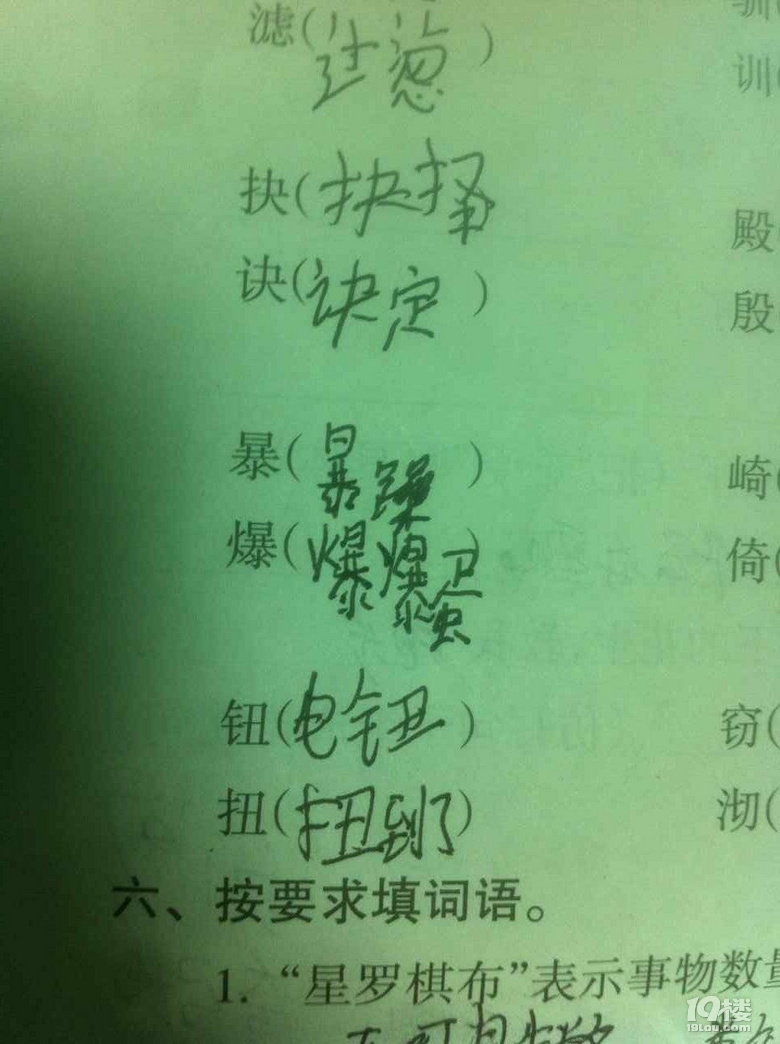 滤(过滤) 驯
训(
抉(抉择
诀(诀定) 殿(
殷(
暴(暴躁) 崎(
爆(爆爆蛋) 倚(
钮(电钮) 窃(
扭(扭到了) 沏(
六、按要求填词语。
1. “星罗棋布”表示事物数量
19楼
19lou.com